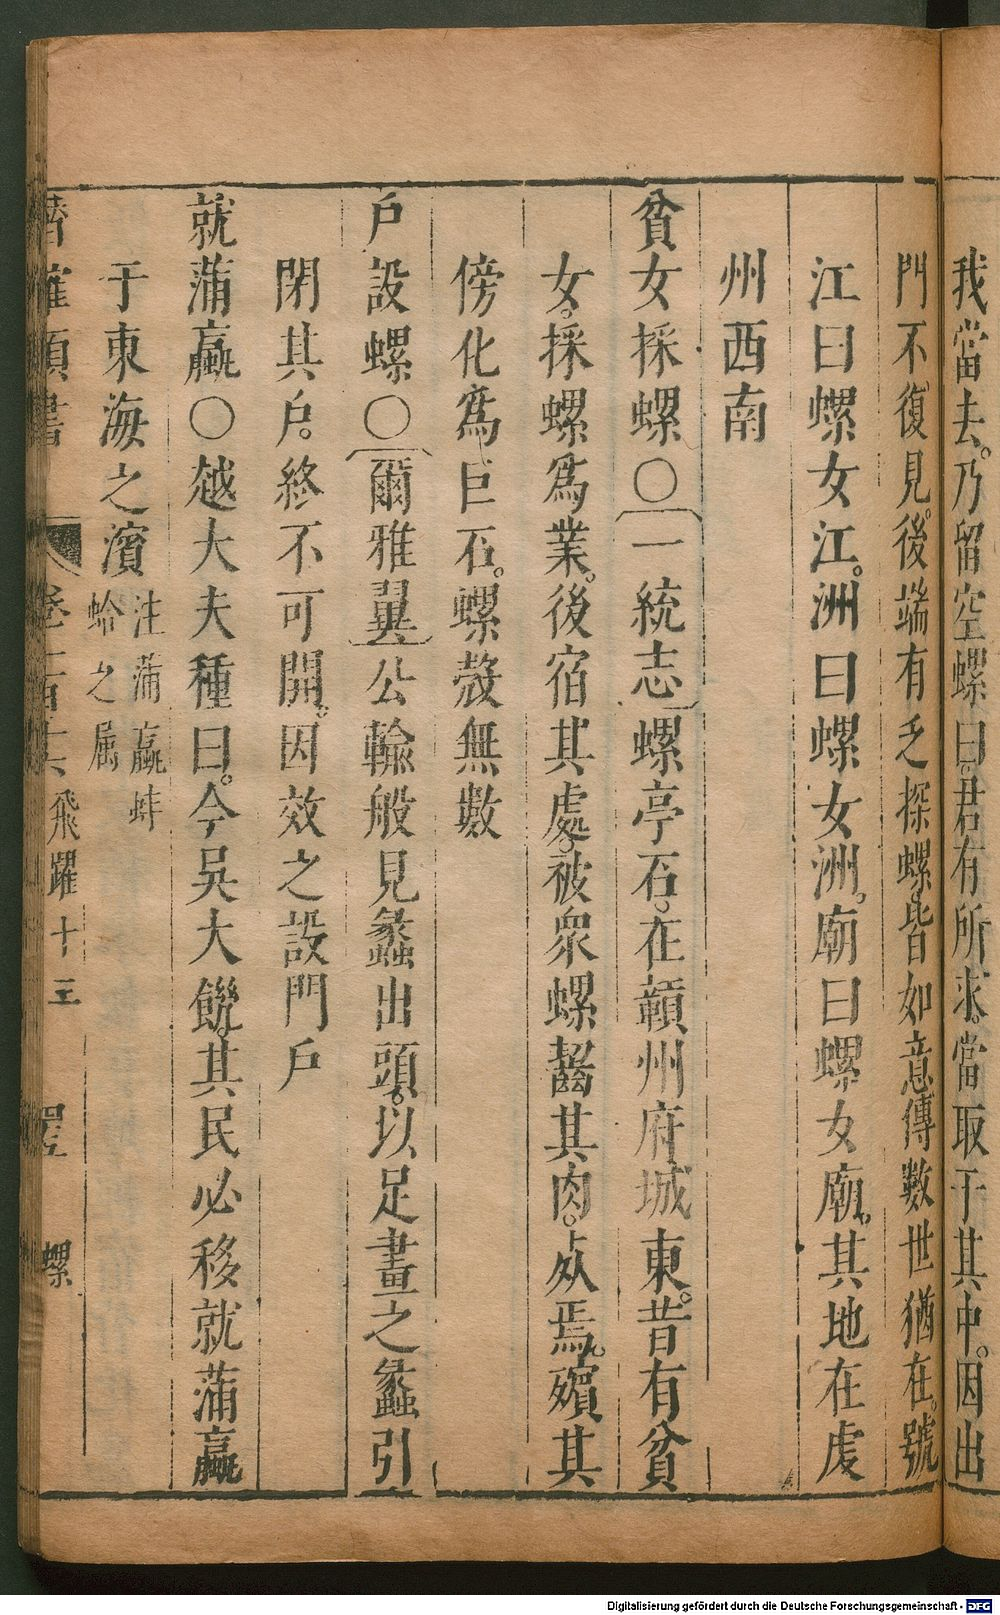 我當去。乃留空螺曰。君有所求。當取于其中。因出
門不復見。後端有乏探螺。皆如意傳數世猶在。號
江曰螺女江。洲曰螺女洲。廟曰螺女廟。其地在虔
州西南
貧女採螺〇一統志螺亭石。在贛州府城東。昔有貧
女。採螺爲業。後宿其處。被衆螺齧其肉。死焉。殯其
傍化爲巨石。螺殼無數
戶設螺〇爾雅翼公輸般見蠡出頭。以足畫之蠡引
閉其戶。終不可開。因效之設門戶
就蒲蠃〇越大夫種曰。今吳大饑。其民必移就蒲蠃
于東海之濱 注蒲蠃蚌
蛤之屬
潛確類書 卷一百十 飛躍十三 螺
Digitalisierung gefördert durch die Deutsche Forschungsgemeinschaft - DFG